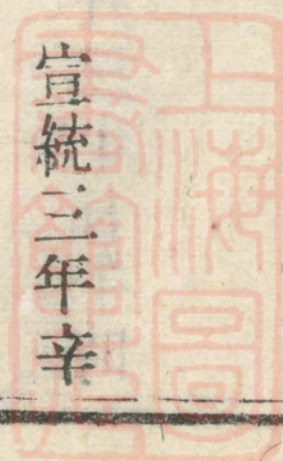 宣統三年辛
上海圖
書館藏